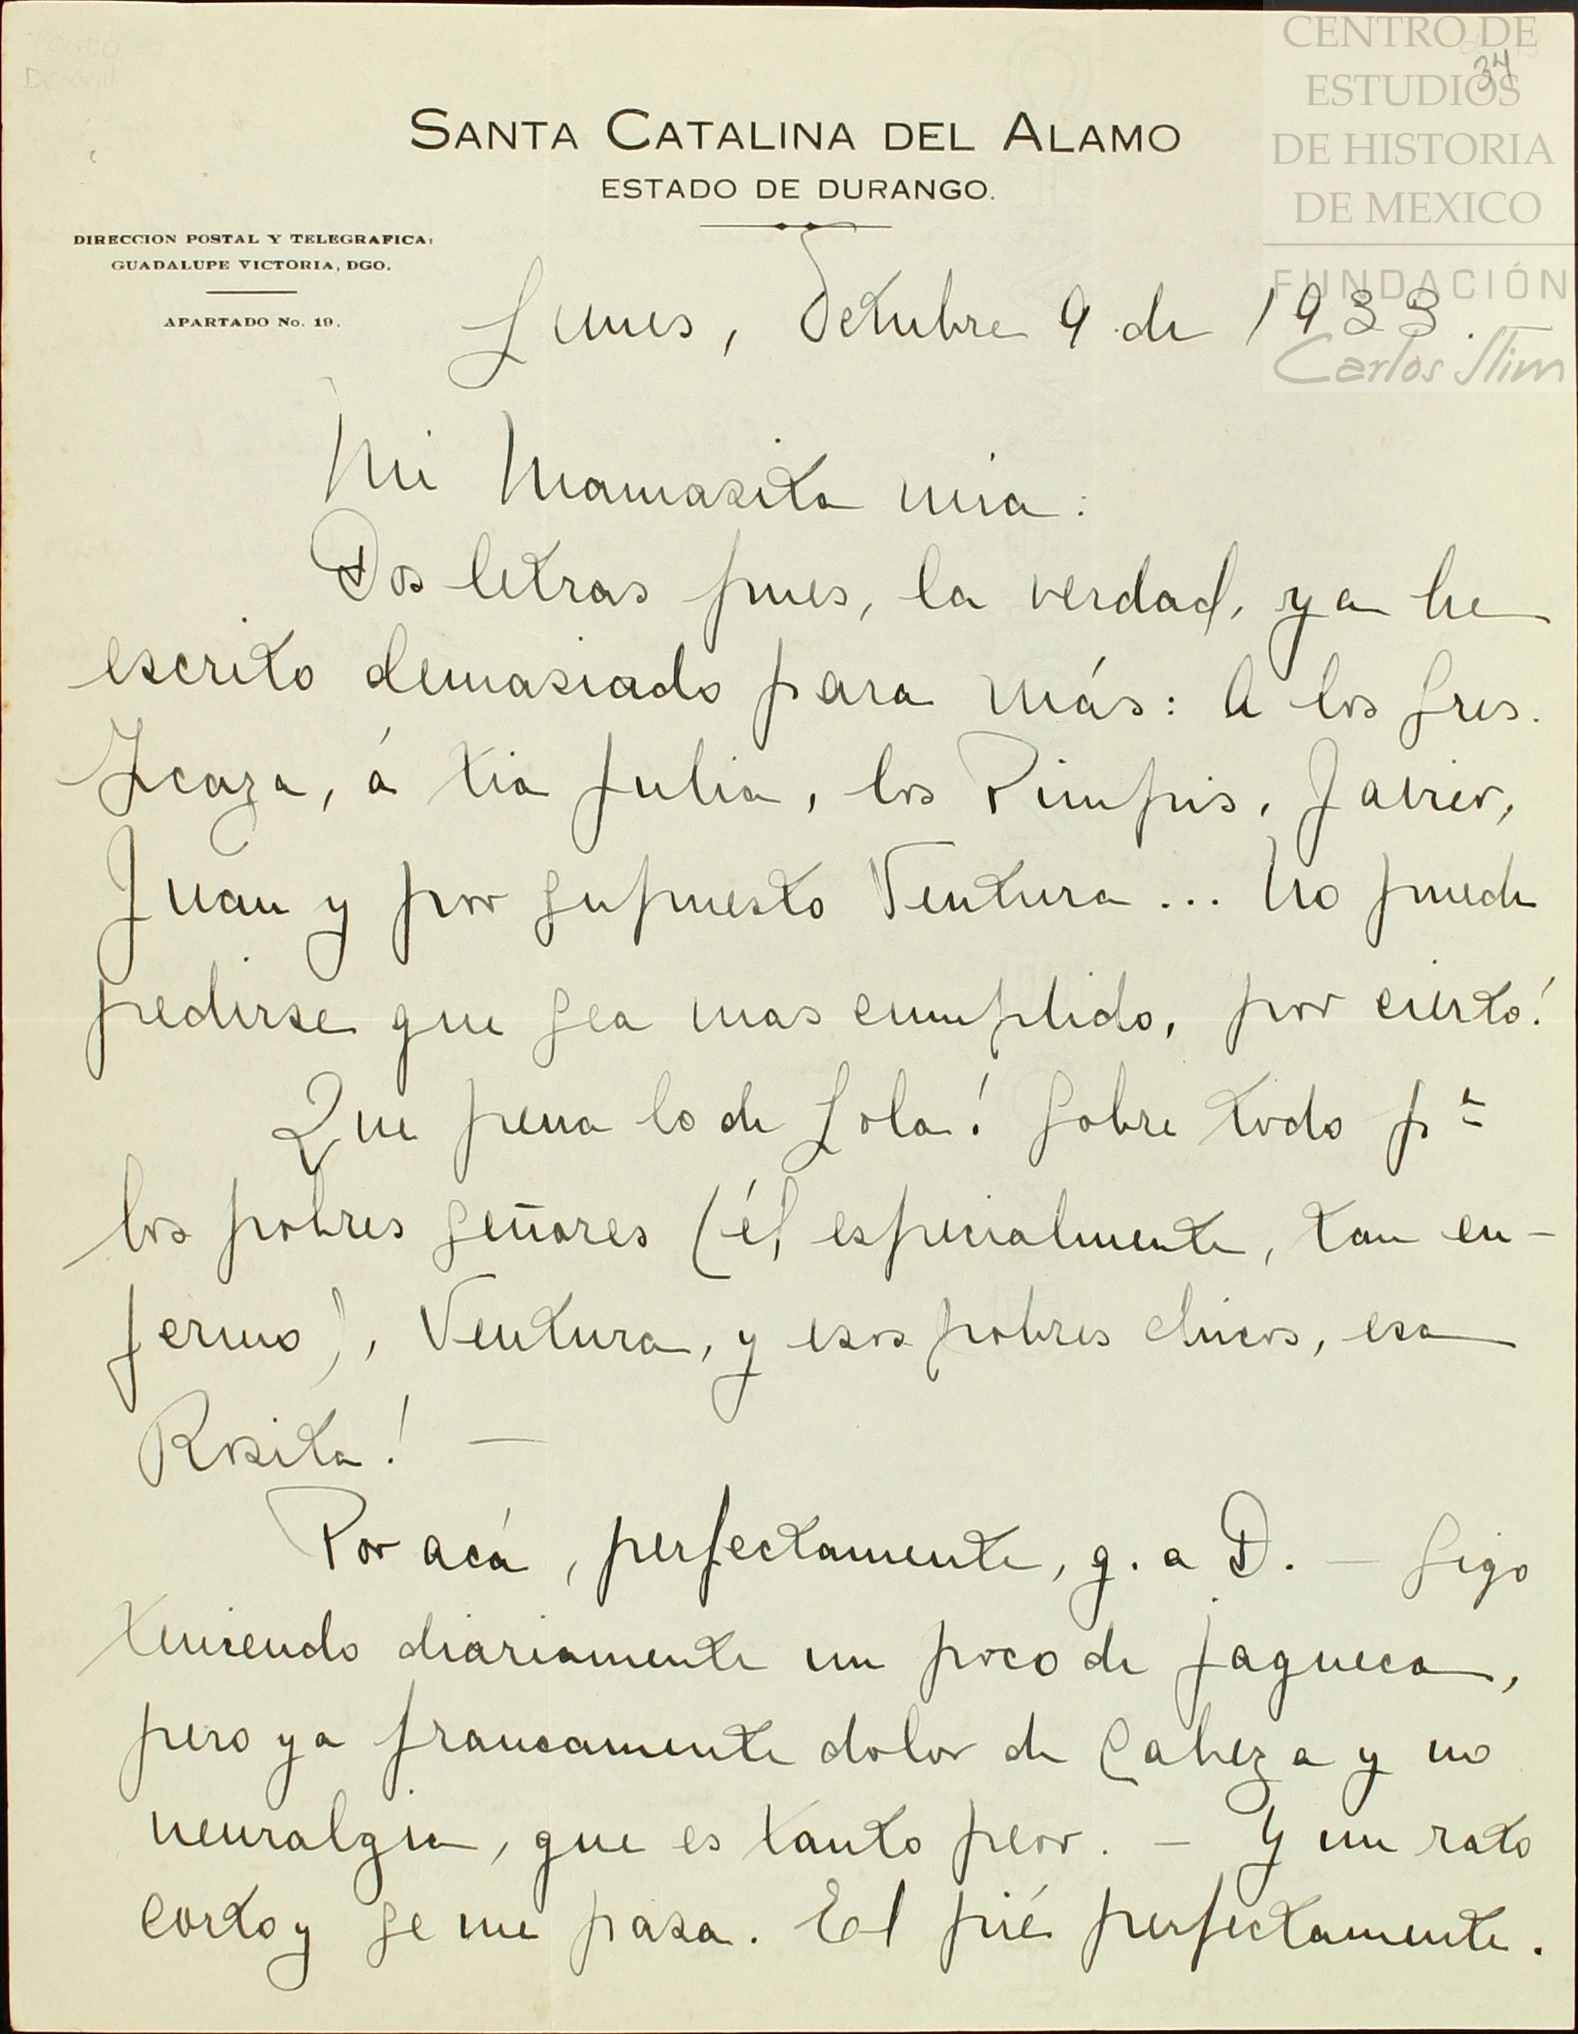 34
SANTA CATALINA DEL ALAMO
ESTADO DE DURANGO.
DIRECCION POSTAL Y TELEGRAFICA:
GUADALUPE VICTORIA, DGO.
APARTADO No. 19.
CENTRO DE
ESTUDIOS
DE HISTORIA
DE MEXICO
FUNDACIÓN
Carlos Slim
Lunes, Octubre 9 de 1933.
Mi Mamasita mia:
Dos letras pues, la verdad, ya he
escrito demasiado para más: A los Sres.
Icaza, á tia Julia, los Pimpis, Javier,
Juan y por supuesto Ventura... No puede
pedirse que sea mas cumplido, por cierto!
Que pena lo de Lola! Sobre todo pª
los pobres señores (él especialmente, tan en-
fermo), Ventura, y esos pobres chicos, esa
Rosita! —
Por acá, perfectamente, g. a D. — Sigo
teniendo diariamente un poco de jaqueca,
pero ya francamente dolor de Cabeza y no
neuralgia, que es tanto peor. — Y un rato
corto y se me pasa. El pié perfectamente.